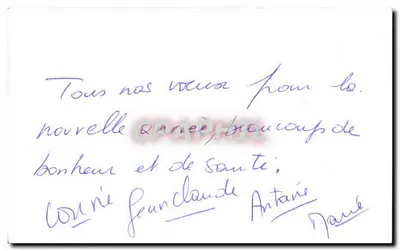 Tous nos vœux pour la
nouvelle année, beaucoup de
bonheur et de santé.
Jean Claude Antoine
Marie